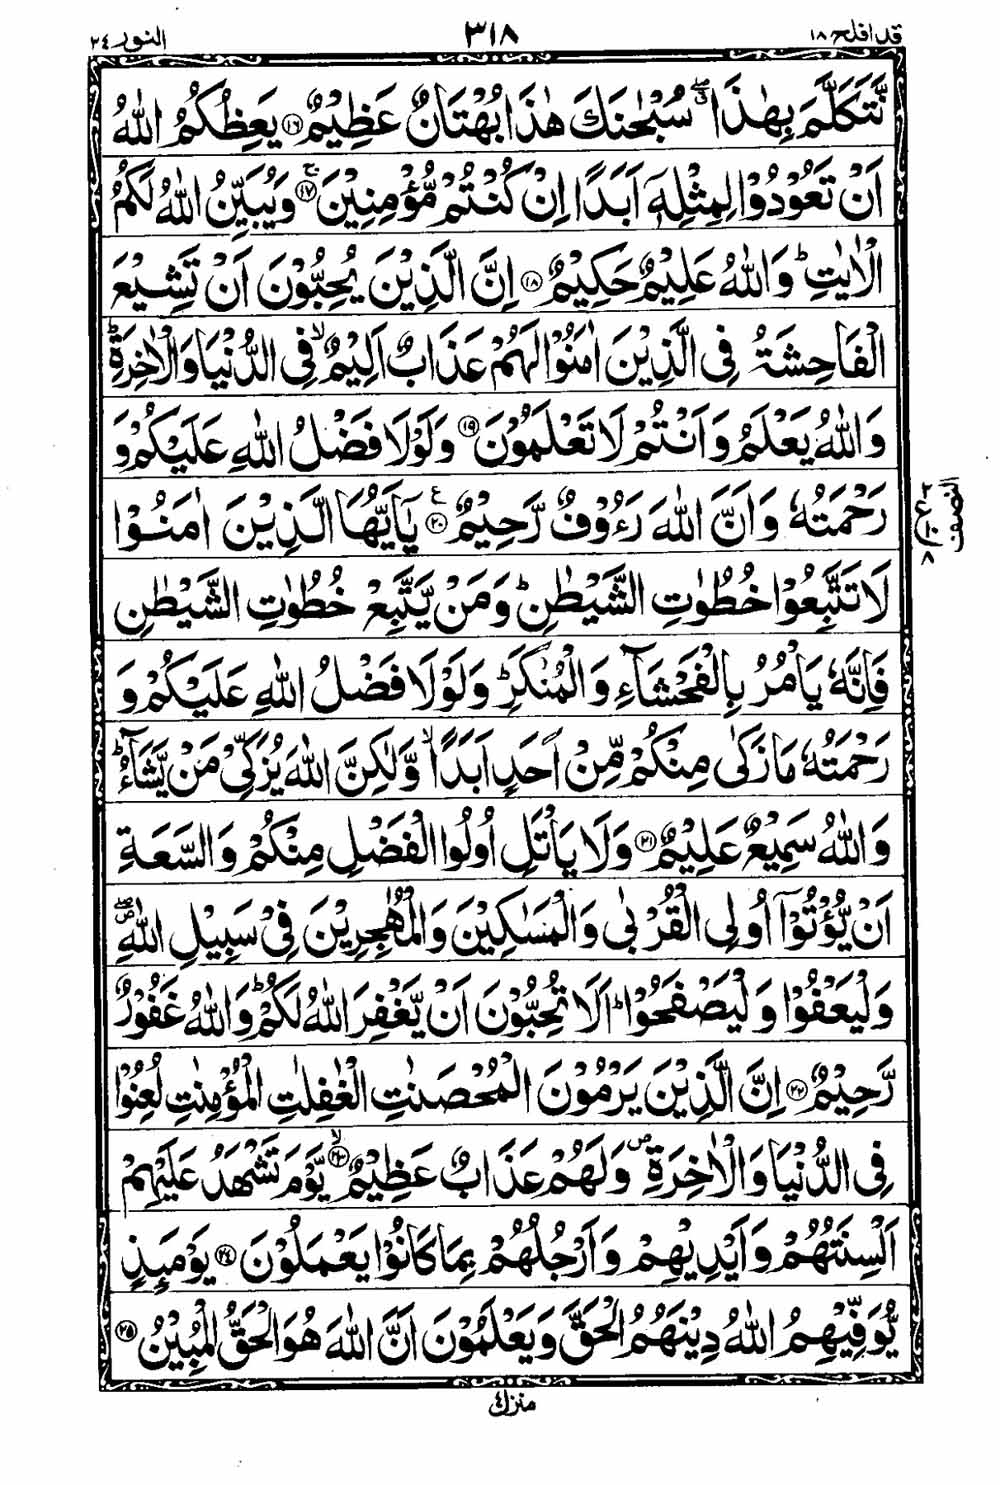 قد افلح ١٨
٣١٨
النور ٢٤
نَّتَكَلَّمَ بِهٰذَا ۖ سُبْحٰنَكَ هٰذَا بُهْتَانٌ عَظِيْمٌ ١٦ يَعِظُكُمُ اللّٰهُ
اَنْ تَعُوْدُوْا لِمِثْلِهٖٓ اَبَدًا اِنْ كُنْتُمْ مُّؤْمِنِيْنَ ۚ ١٧ وَيُبَيِّنُ اللّٰهُ لَكُمُ
الْاٰيٰتِ ؕ وَاللّٰهُ عَلِيْمٌ حَكِيْمٌ ١٨ اِنَّ الَّذِيْنَ يُحِبُّوْنَ اَنْ تَشِيْعَ
الْفَاحِشَةُ فِى الَّذِيْنَ اٰمَنُوْا لَهُمْ عَذَابٌ اَلِيْمٌ ۙ فِى الدُّنْيَا وَالْاٰخِرَةِ ؕ
وَاللّٰهُ يَعْلَمُ وَاَنْتُمْ لَا تَعْلَمُوْنَ ١٩ وَلَوْلَا فَضْلُ اللّٰهِ عَلَيْكُمْ وَ
رَحْمَتُهٗ وَاَنَّ اللّٰهَ رَءُوْفٌ رَّحِيْمٌ ٢٠ ع يٰٓاَيُّهَا الَّذِيْنَ اٰمَنُوْا
لَا تَتَّبِعُوْا خُطُوٰتِ الشَّيْطٰنِ ؕ وَمَنْ يَّتَّبِعْ خُطُوٰتِ الشَّيْطٰنِ
فَاِنَّهٗ يَاْمُرُ بِالْفَحْشَآءِ وَالْمُنْكَرِ ؕ وَلَوْلَا فَضْلُ اللّٰهِ عَلَيْكُمْ وَ
رَحْمَتُهٗ مَا زَكٰى مِنْكُمْ مِّنْ اَحَدٍ اَبَدًا ۙ وَّلٰكِنَّ اللّٰهَ يُزَكِّىْ مَنْ يَّشَآءُ ؕ
وَاللّٰهُ سَمِيْعٌ عَلِيْمٌ ٢١ وَلَا يَاْتَلِ اُولُوا الْفَضْلِ مِنْكُمْ وَالسَّعَةِ
اَنْ يُّؤْتُوْٓا اُولِى الْقُرْبٰى وَالْمَسٰكِيْنَ وَالْمُهٰجِرِيْنَ فِىْ سَبِيْلِ اللّٰهِ ۖ
وَلْيَعْفُوْا وَلْيَصْفَحُوْا ؕ اَلَا تُحِبُّوْنَ اَنْ يَّغْفِرَ اللّٰهُ لَكُمْ ؕ وَاللّٰهُ غَفُوْرٌ
رَّحِيْمٌ ٢٢ اِنَّ الَّذِيْنَ يَرْمُوْنَ الْمُحْصَنٰتِ الْغٰفِلٰتِ الْمُؤْمِنٰتِ لُعِنُوْا
فِى الدُّنْيَا وَالْاٰخِرَةِ ص وَلَهُمْ عَذَابٌ عَظِيْمٌ ۙ ٢٣ يَّوْمَ تَشْهَدُ عَلَيْهِمْ
اَلْسِنَتُهُمْ وَاَيْدِيْهِمْ وَاَرْجُلُهُمْ بِمَا كَانُوْا يَعْمَلُوْنَ ٢٤ يَوْمَئِذٍ
يُّوَفِّيْهِمُ اللّٰهُ دِيْنَهُمُ الْحَقَّ وَيَعْلَمُوْنَ اَنَّ اللّٰهَ هُوَ الْحَقُّ الْمُبِيْنُ ٢٥
النصف
منزل ٤